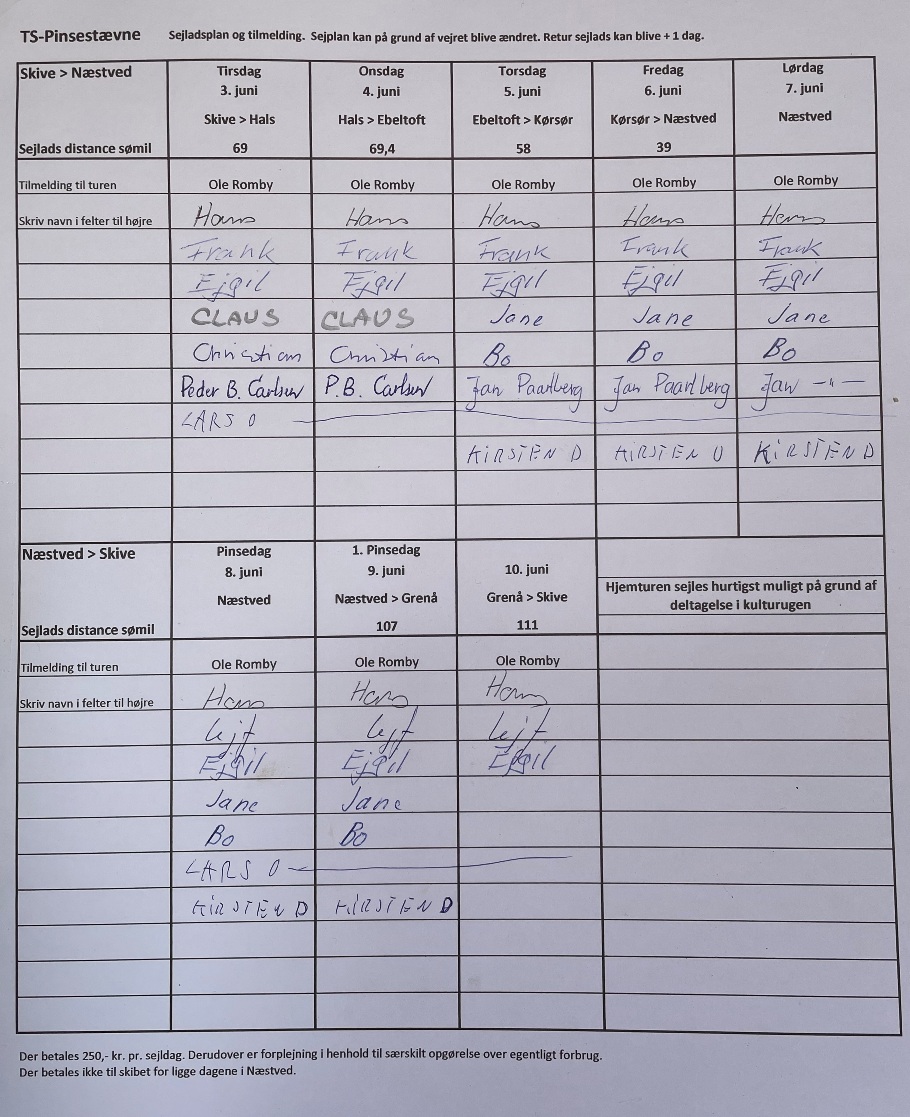 TS-Pinsestævne Sejladsplan og tilmelding. Sejplan kan på grund af vejret blive ændret. Retur sejlads kan blive + 1 dag.
Skive > Næstved Tirsdag Onsdag Torsdag Fredag Lørdag
3. juni 4. juni 5. juni 6. juni 7. juni
Skive > Hals Hals > Ebeltoft Ebeltoft > Kørsør Kørsør > Næstved Næstved
Sejlads distance sømil 69 69,4 58 39
Tilmelding til turen Ole Romby Ole Romby Ole Romby Ole Romby Ole Romby
Skriv navn i felter til højre Hans Hans Hans Hans Hans
Frank Frank Frank Frank Frank
Ejgil Ejgil Ejgil Ejgil Ejgil
CLAUS CLAUS Jane Jane Jane
Christian Christian Bo Bo Bo
Peder B. Carlsen P.B. Carlsen Jan Paarlberg Jan Paarlberg Jan -"-
LARS O
KIRSTEN D KIRSTEN D KIRSTEN D
Næstved > Skive Pinsedag 1. Pinsedag
8. juni 9. juni 10. juni
Næstved Næstved > Grenå Grenå > Skive
Hjemturen sejles hurtigst muligt på grund af
deltagelse i kulturugen
Sejlads distance sømil 107 111
Tilmelding til turen Ole Romby Ole Romby Ole Romby
Skriv navn i felter til højre Hans Hans Hans
Lejf Lejf Lejf
Ejgil Ejgil Ejgil
Jane Jane
Bo Bo
LARS O
KIRSTEN D KIRSTEN D
Der betales 250,- kr. pr. sejldag. Derudover er forplejning i henhold til særskilt opgørelse over egentligt forbrug.
Der betales ikke til skibet for ligge dagene i Næstved.